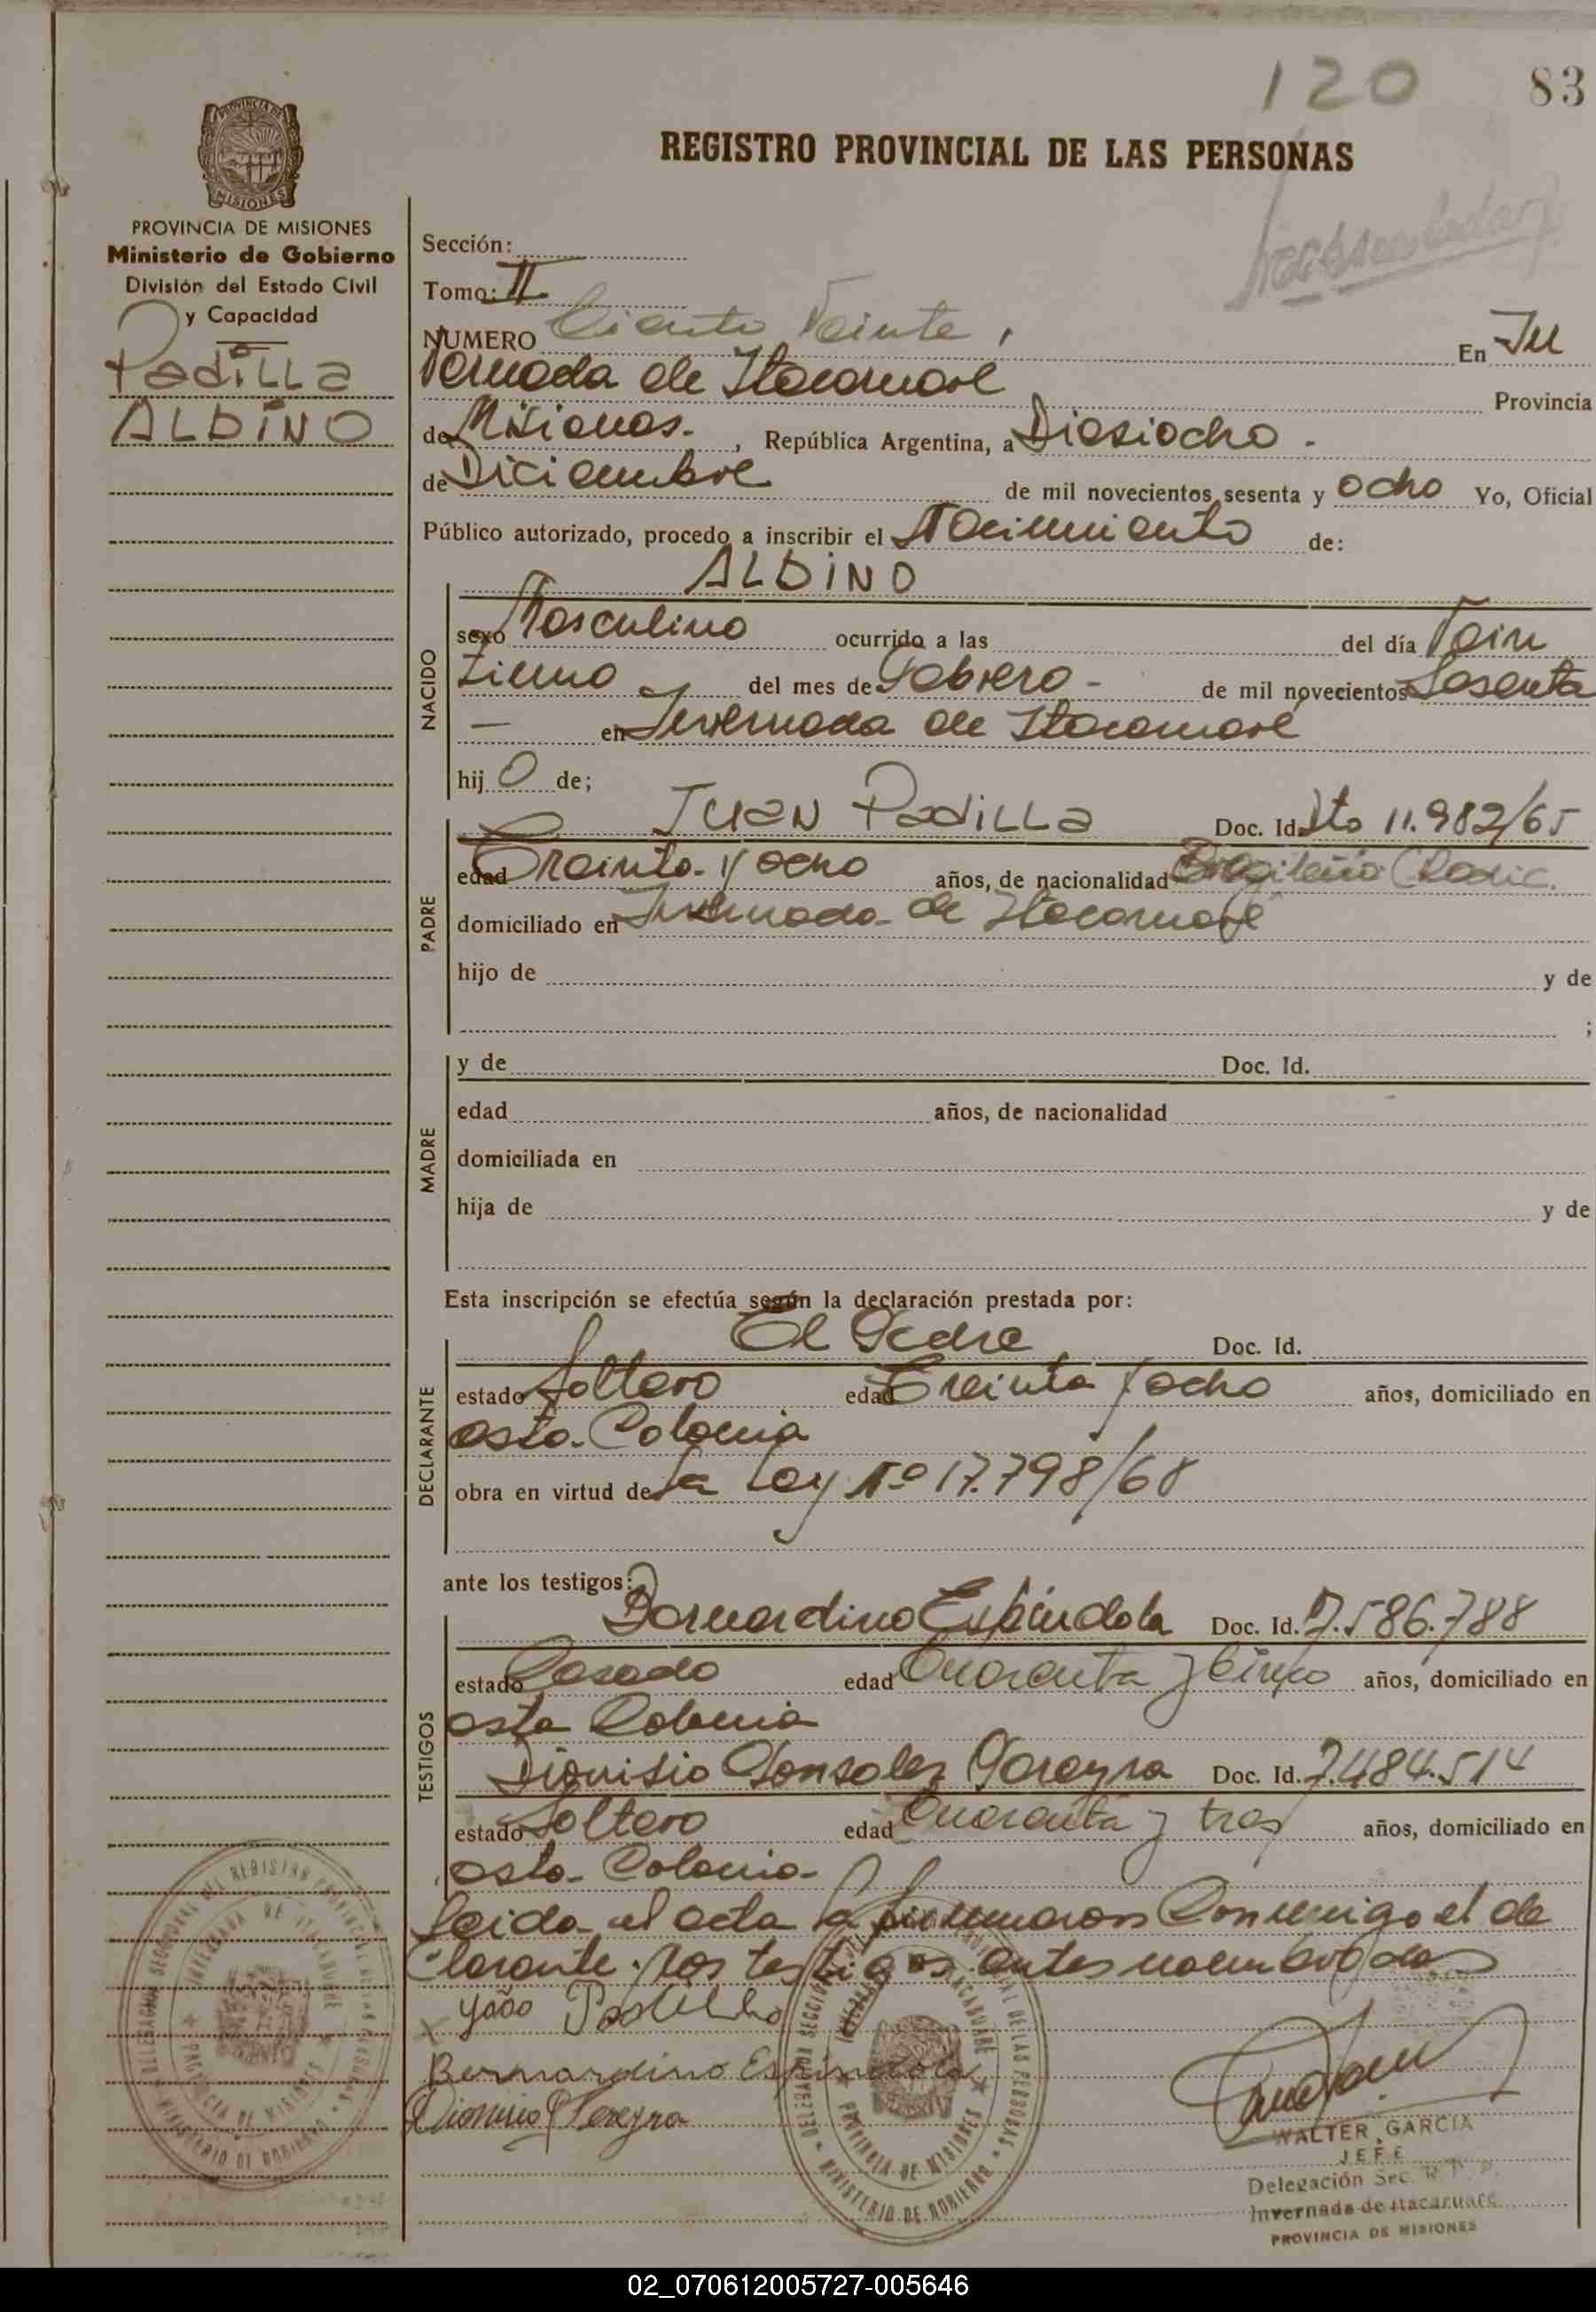 120 83
REGISTRO PROVINCIAL DE LAS PERSONAS
PROVINCIA DE MISIONES
Ministerio de Gobierno
División del Estado Civil
y Capacidad
Padilla
ALDINO
Sección:
Tomo: II
NUMERO Ciento Veinte, En In
vernada de Itacaruaré Provincia
de Misiones. , República Argentina, a Dieciocho
de Diciembre de mil novecientos sesenta y ocho Yo, Oficial
Público autorizado, procedo a inscribir el Nacimiento de:
NACIDO
ALDINO
sexo Masculino ocurrido a las del día Vein
tiuno del mes de Febrero - de mil novecientos Sesenta
— en Invernada de Itacaruaré
hij o de;
PADRE
JUAN Padilla Doc. Id. Dto 11.982/65
edad Treinta y ocho años, de nacionalidad Brasileña (Radic.
domiciliado en Invernada de Itacaruaré
hijo de y de
;
MADRE
y de Doc. Id.
edad años, de nacionalidad
domiciliada en
hija de y de
Esta inscripción se efectúa según la declaración prestada por:
DECLARANTE
El Padre Doc. Id.
estado Soltero edad Treinta y ocho años, domiciliado en
esta Colonia
obra en virtud de la Ley Nº 17.798/68
ante los testigos:
TESTIGOS
Bernardino Espíndola Doc. Id. 7.586.788
estado Casado edad Cuarenta y Cinco años, domiciliado en
esta Colonia
Dionisio Gonsales Pereyra Doc. Id. 7.484.514
estado Soltero edad Cuarenta y tres años, domiciliado en
esta Colonia
Leida el acta la firmaron Conmigo el de
clarante. los testigos antes nombrados
João Padilha
Bernardino Espindola
Dionicio G Pereyra
WALTER GARCIA
JEFE
Delegación Sec. R. P. P.
Invernada de Itacaruaré
PROVINCIA DE MISIONES
DELEGACION SECCIONAL DEL REGISTRO PROVINCIAL DE LAS PERSONAS
INVERNADA DE ITACARUARE
PROVINCIA DE MISIONES
MINISTERIO DE GOBIERNO
02_070612005727-005646